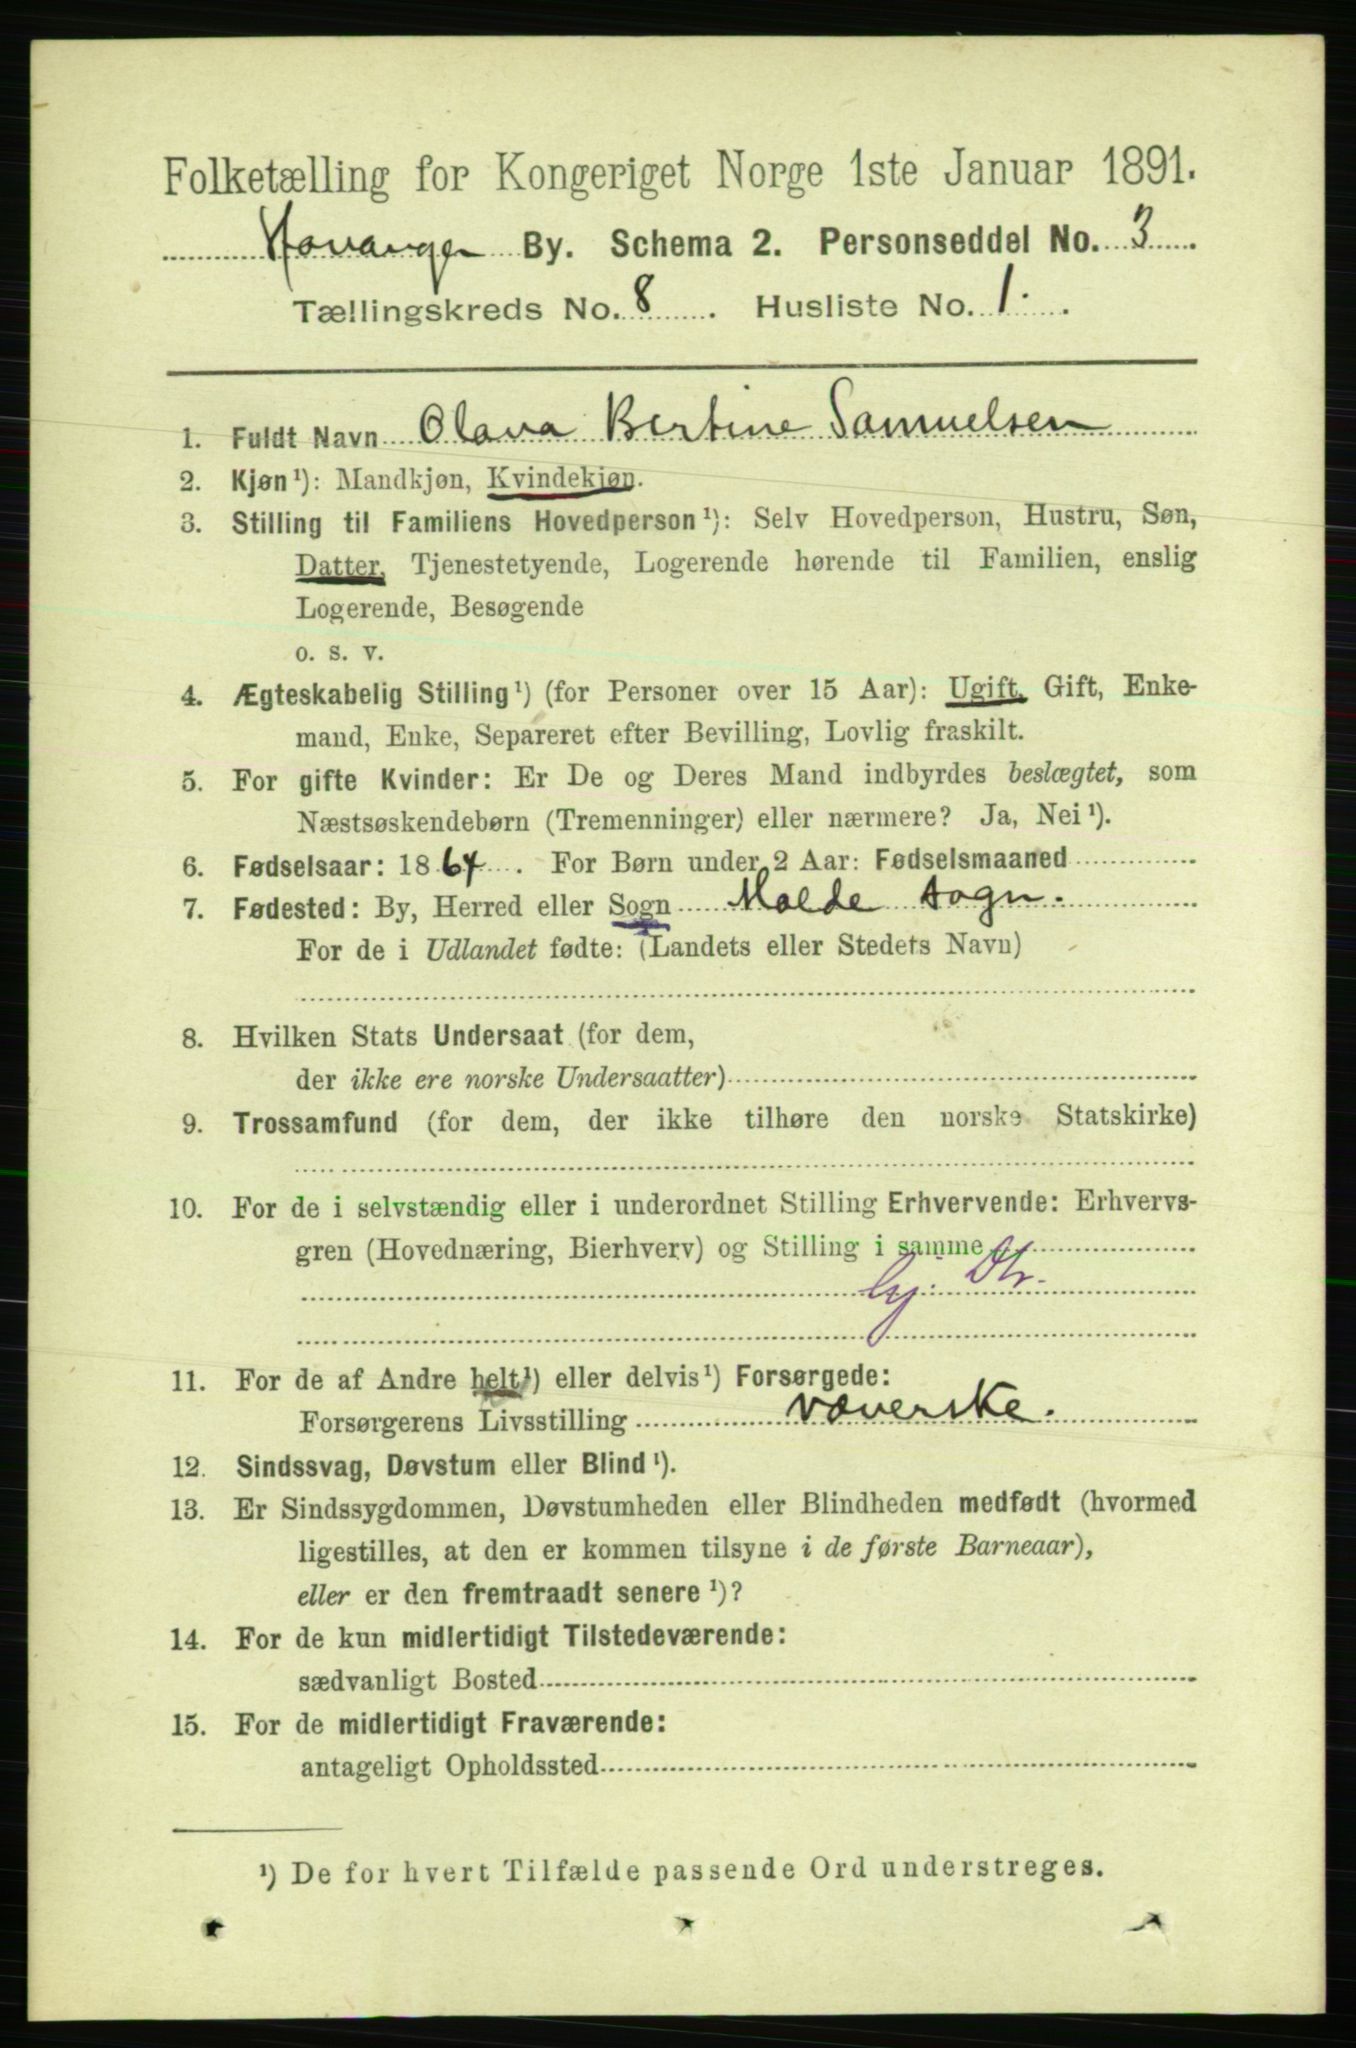 Folketælling for Kongeriget Norge 1ste Januar 1891.
Stavanger By. Schema 2. Personseddel No. 3
Tællingskreds No. 8. Husliste No. 1.
1. Fuldt Navn Olava Bertine Samuelsen
2. Kjøn¹): Mandkjøn, Kvindekjøn.
3. Stilling til Familiens Hovedperson¹): Selv Hovedperson, Hustru, Søn,
Datter, Tjenestetyende, Logerende hørende til Familien, enslig
Logerende, Besøgende
o. s. v.
4. Ægteskabelig Stilling¹) (for Personer over 15 Aar): Ugift, Gift, Enke-
mand, Enke, Separeret efter Bevilling, Lovlig fraskilt.
5. For gifte Kvinder: Er De og Deres Mand indbyrdes beslægtet, som
Næstsøskendebørn (Tremenninger) eller nærmere? Ja, Nei¹).
6. Fødselsaar: 1864. For Børn under 2 Aar: Fødselsmaaned
7. Fødested: By, Herred eller Sogn Molde sogn.
For de i Udlandet fødte: (Landets eller Stedets Navn)
8. Hvilken Stats Undersaat (for dem,
der ikke ere norske Undersaatter)
9. Trossamfund (for dem, der ikke tilhøre den norske Statskirke)
10. For de i selvstændig eller i underordnet Stilling Erhvervende: Erhvervs-
gren (Hovednæring, Bierhverv) og Stilling i samme
11. For de af Andre helt¹) eller delvis¹) Forsørgede:
Forsørgerens Livsstilling Væverske.
12. Sindssvag, Døvstum eller Blind¹).
13. Er Sindssygdommen, Døvstumheden eller Blindheden medfødt (hvormed
ligestilles, at den er kommen tilsyne i de første Barneaar),
eller er den fremtraadt senere¹)?
14. For de kun midlertidigt Tilstedeværende:
sædvanligt Bosted
15. For de midlertidigt Fraværende:
antageligt Opholdssted
¹) De for hvert Tilfælde passende Ord understreges.